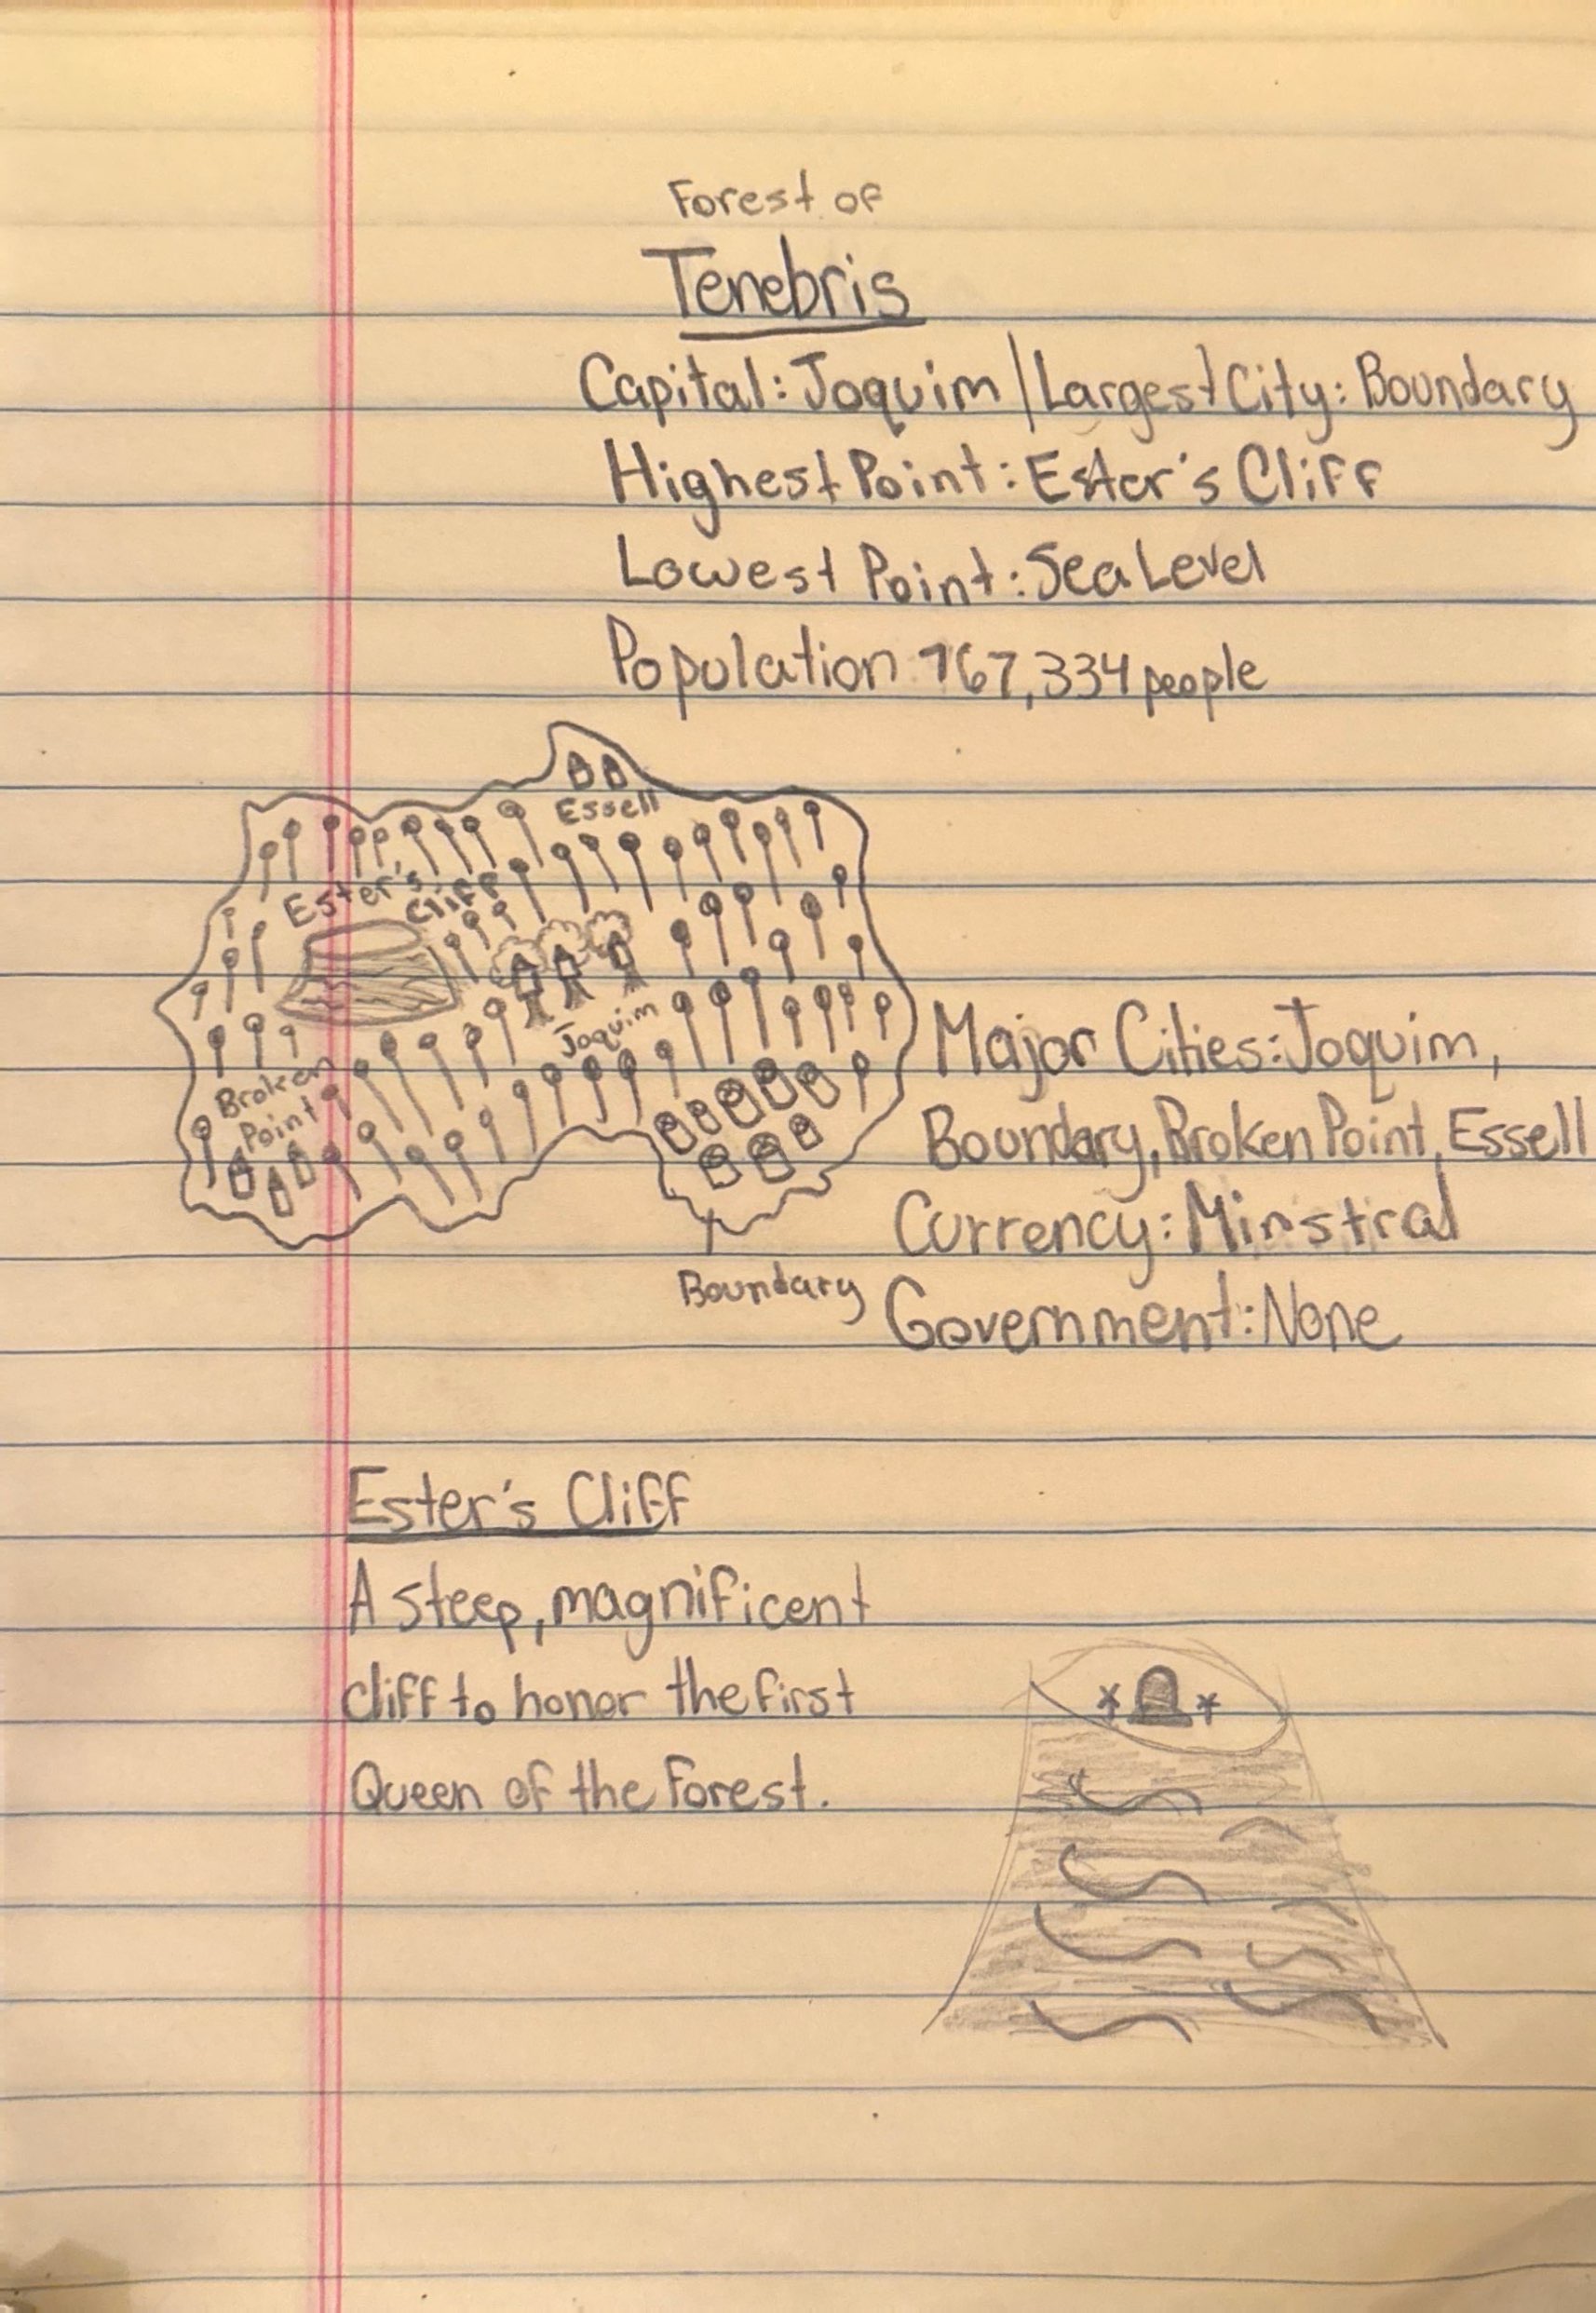 Forest of
Tenebris
Capital: Joquim | Largest City: Boundary
Highest Point: Ester's Cliff
Lowest Point: Sea Level
Population 767,334 people
Essell
Ester's
Cliff
Joquim
Broken
Point
Boundary
Major Cities: Joquim,
Boundary, Broken Point, Essell
Currency: Minstral
Government: None
Ester's Cliff
A steep, magnificent
cliff to honor the first
Queen of the Forest.